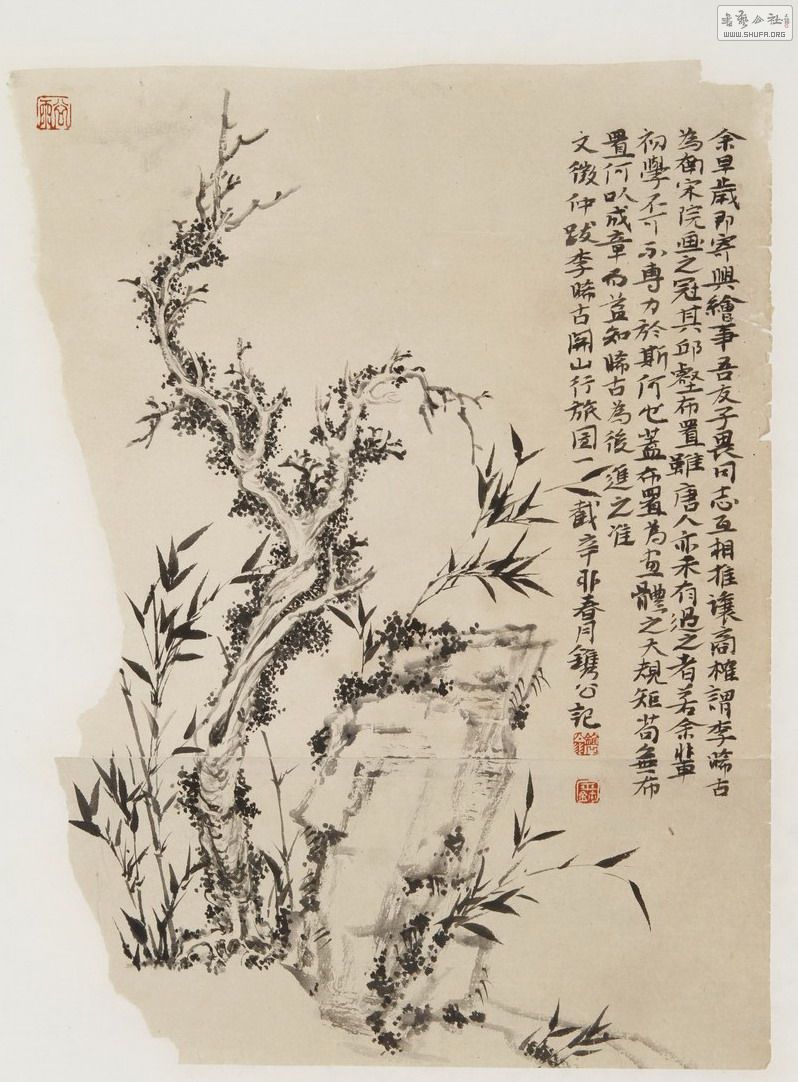 余早歲即寄興繪事吾友子畏同志互相推讓商榷謂李晞古
為南宋院画之冠其邱壑布置雖唐人亦未有過之者若余輩
初學不可不專力於斯何也蓋布置為画體之大規矩苟無布
置何以成章而益知晞古為後進之准
文徵仲跋李晞古關山行旅图一截辛卯春月鐫公記
書藝公社
WWW.SHUFA.ORG